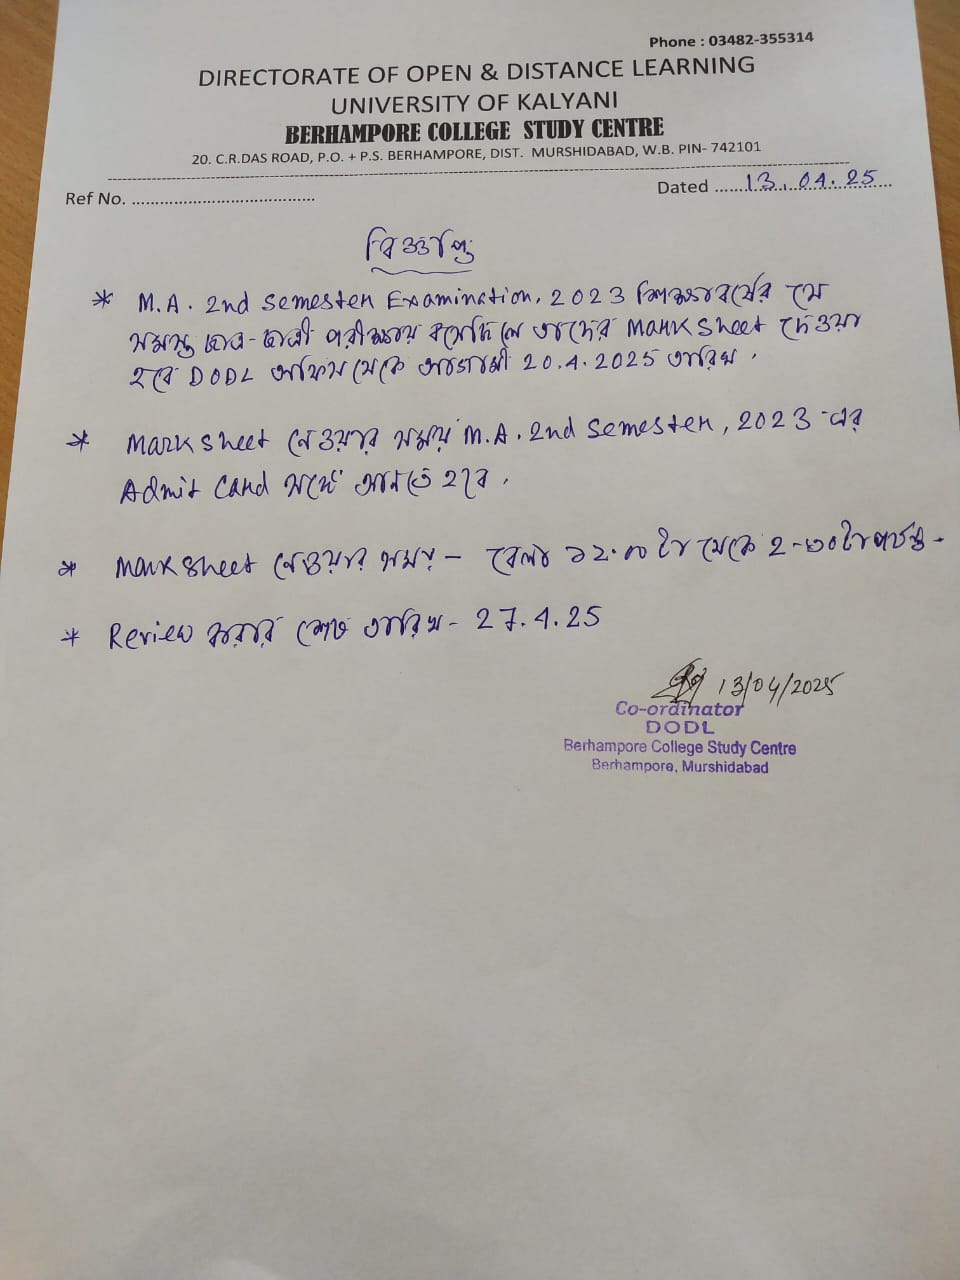 Phone : 03482-355314
DIRECTORATE OF OPEN & DISTANCE LEARNING
UNIVERSITY OF KALYANI
BERHAMPORE COLLEGE STUDY CENTRE
20. C.R.DAS ROAD, P.O. + P.S. BERHAMPORE, DIST. MURSHIDABAD, W.B. PIN- 742101
Ref No. ....................................... Dated ......13.04.25......
বিজ্ঞপ্তি
* M.A. 2nd Semester Examination, 2023 শিক্ষাবর্ষের যে
সমস্ত ছাত্র-ছাত্রী পরীক্ষায় বসেছিলে তাদের Marksheet দেওয়া
হবে DODL অফিস থেকে আগামী 20.4.2025 তারিখ.
* Marksheet নেওয়ার সময় M.A. 2nd Semester, 2023-এর
Admit Card সঙ্গে আনতে হবে.
* Marksheet নেওয়ার সময় - বেলা ১২.০০ টা থেকে 2-৩০ টা পর্যন্ত.
* Review করার শেষ তারিখ - 27.4.25
13/04/2025
Co-ordinator
DODL
Berhampore College Study Centre
Berhampore, Murshidabad